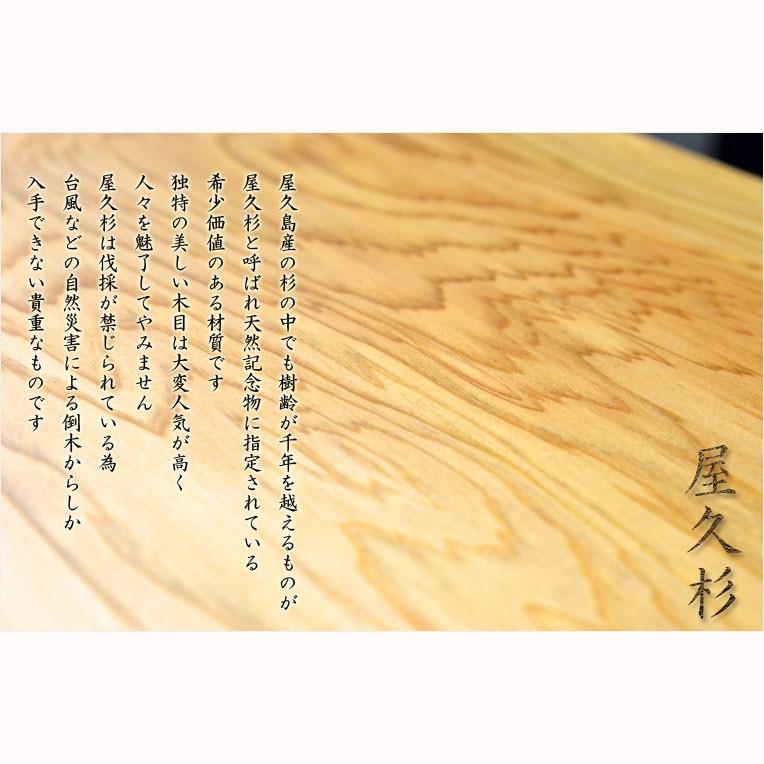 屋久島産の杉の中でも樹齢が千年を越えるものが
屋久杉と呼ばれ天然記念物に指定されている
希少価値のある材質です
独特の美しい木目は大変人気が高く
人々を魅了してやみません
屋久杉は伐採が禁じられている為
台風などの自然災害による倒木からしか
入手できない貴重なものです
屋久杉